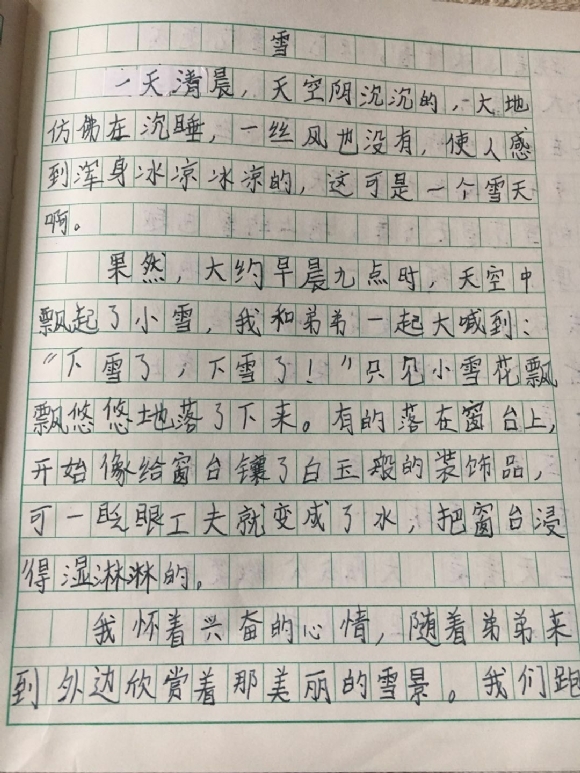 雪
一天清晨，天空阴沉沉的，大地
仿佛在沉睡，一丝风也没有，使人感
到浑身冰凉冰凉的，这可是一个雪天
啊。
果然，大约早晨九点时，天空中
飘起了小雪，我和弟弟一起大喊到：
“下雪了，下雪了！”只见小雪花飘
飘悠悠地落了下来。有的落在窗台上，
开始像给窗台镶了白玉般的装饰品，
可一眨眼工夫就变成了水，把窗台浸
得湿淋淋的。
我怀着兴奋的心情，随着弟弟来
到外边欣赏着那美丽的雪景。我们跑